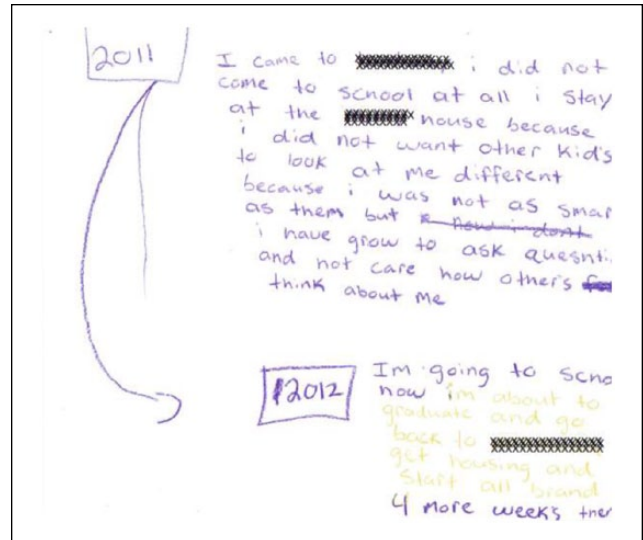 2011
I came to i did not
come to school at all i stay
at the house because
i did not want other kid's
to look at me different
because i was not as smar
as them but now i dont
i have grow to ask quesnti
and not care how other's
think about me
2012
Im going to scho
now im about to
graduate and go
back to
get housing and
start all brand
4 more weeks ther